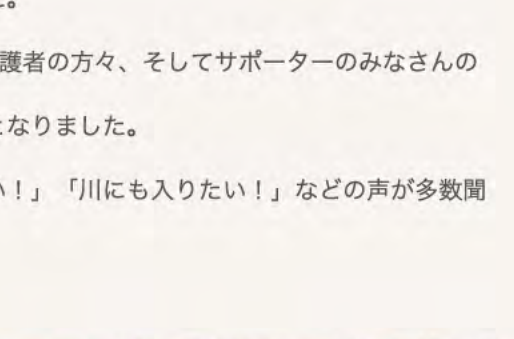 た。
護者の方々、そしてサポーターのみなさんの
となりました。
い！」「川にも入りたい！」などの声が多数聞